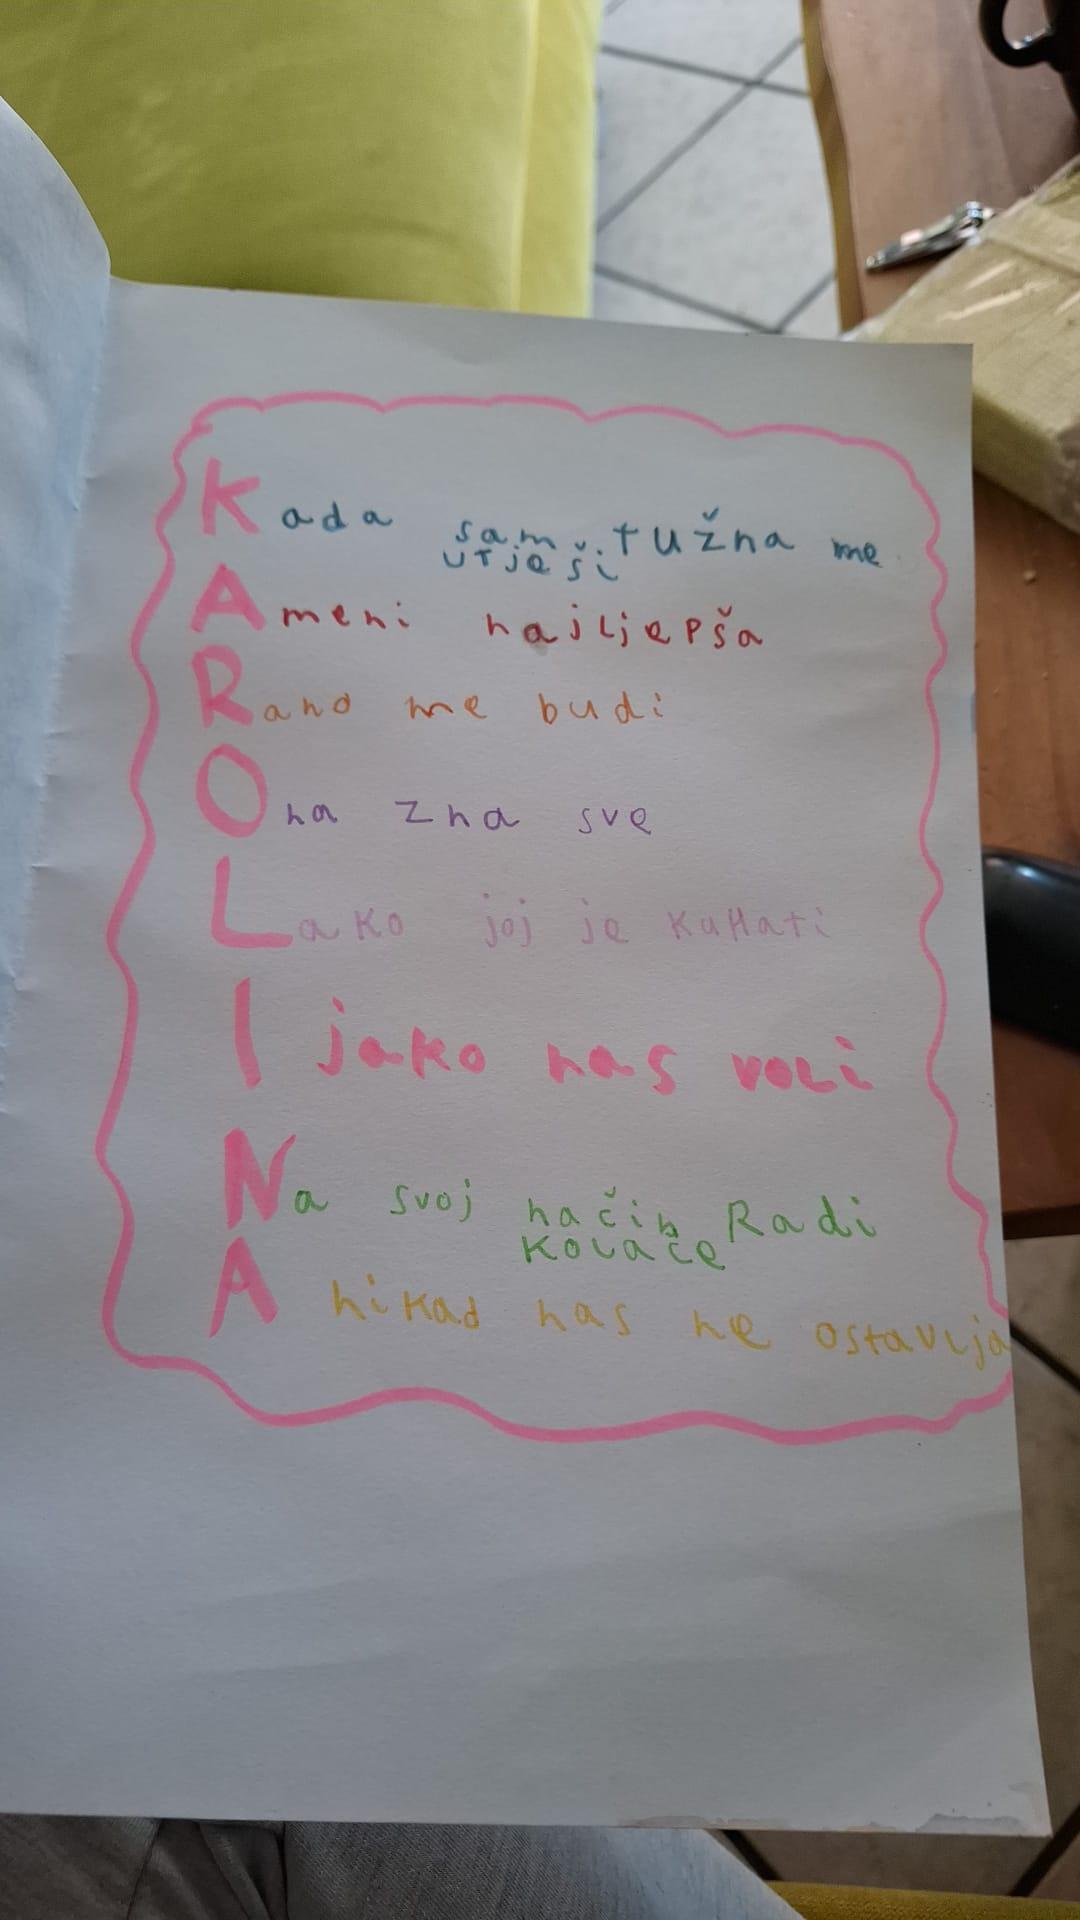 Kada sam tužna me
utješi
Ameni najljepša
Rano me budi
Ona zna sve
Lako joj je kuHati
I jako nas voli
Na svoj način Radi
kolače
A nikad nas ne ostavlja